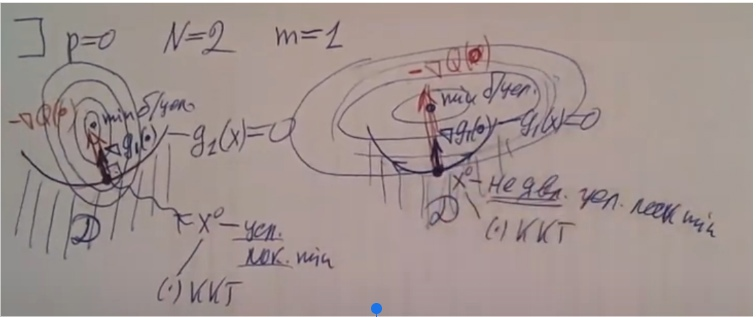 ] p=0 N=2 m=1
-∇Q(•)
min б/усл.
∇g₁(•)
g₁(x)=0
D
x⁰ – усл.
лок. min
(·) ККТ
-∇Q(•)
min б/усл.
∇g₁(•)
g₁(x)=0
x⁰ – не явл. усл. лок min
D
(·) ККТ